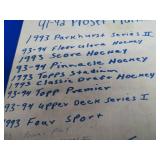 91-92 Most
1993 Parkhurst Series II
93-94 Fleer Ultra Hockey
1993 Score Hockey
93-94 Pinnacle Hockey
1993 Topps Stadium
1993 Classic Draft Hockey
93-94 Topp Premier
93-94 Upper Deck Series I
1993 Four Sport